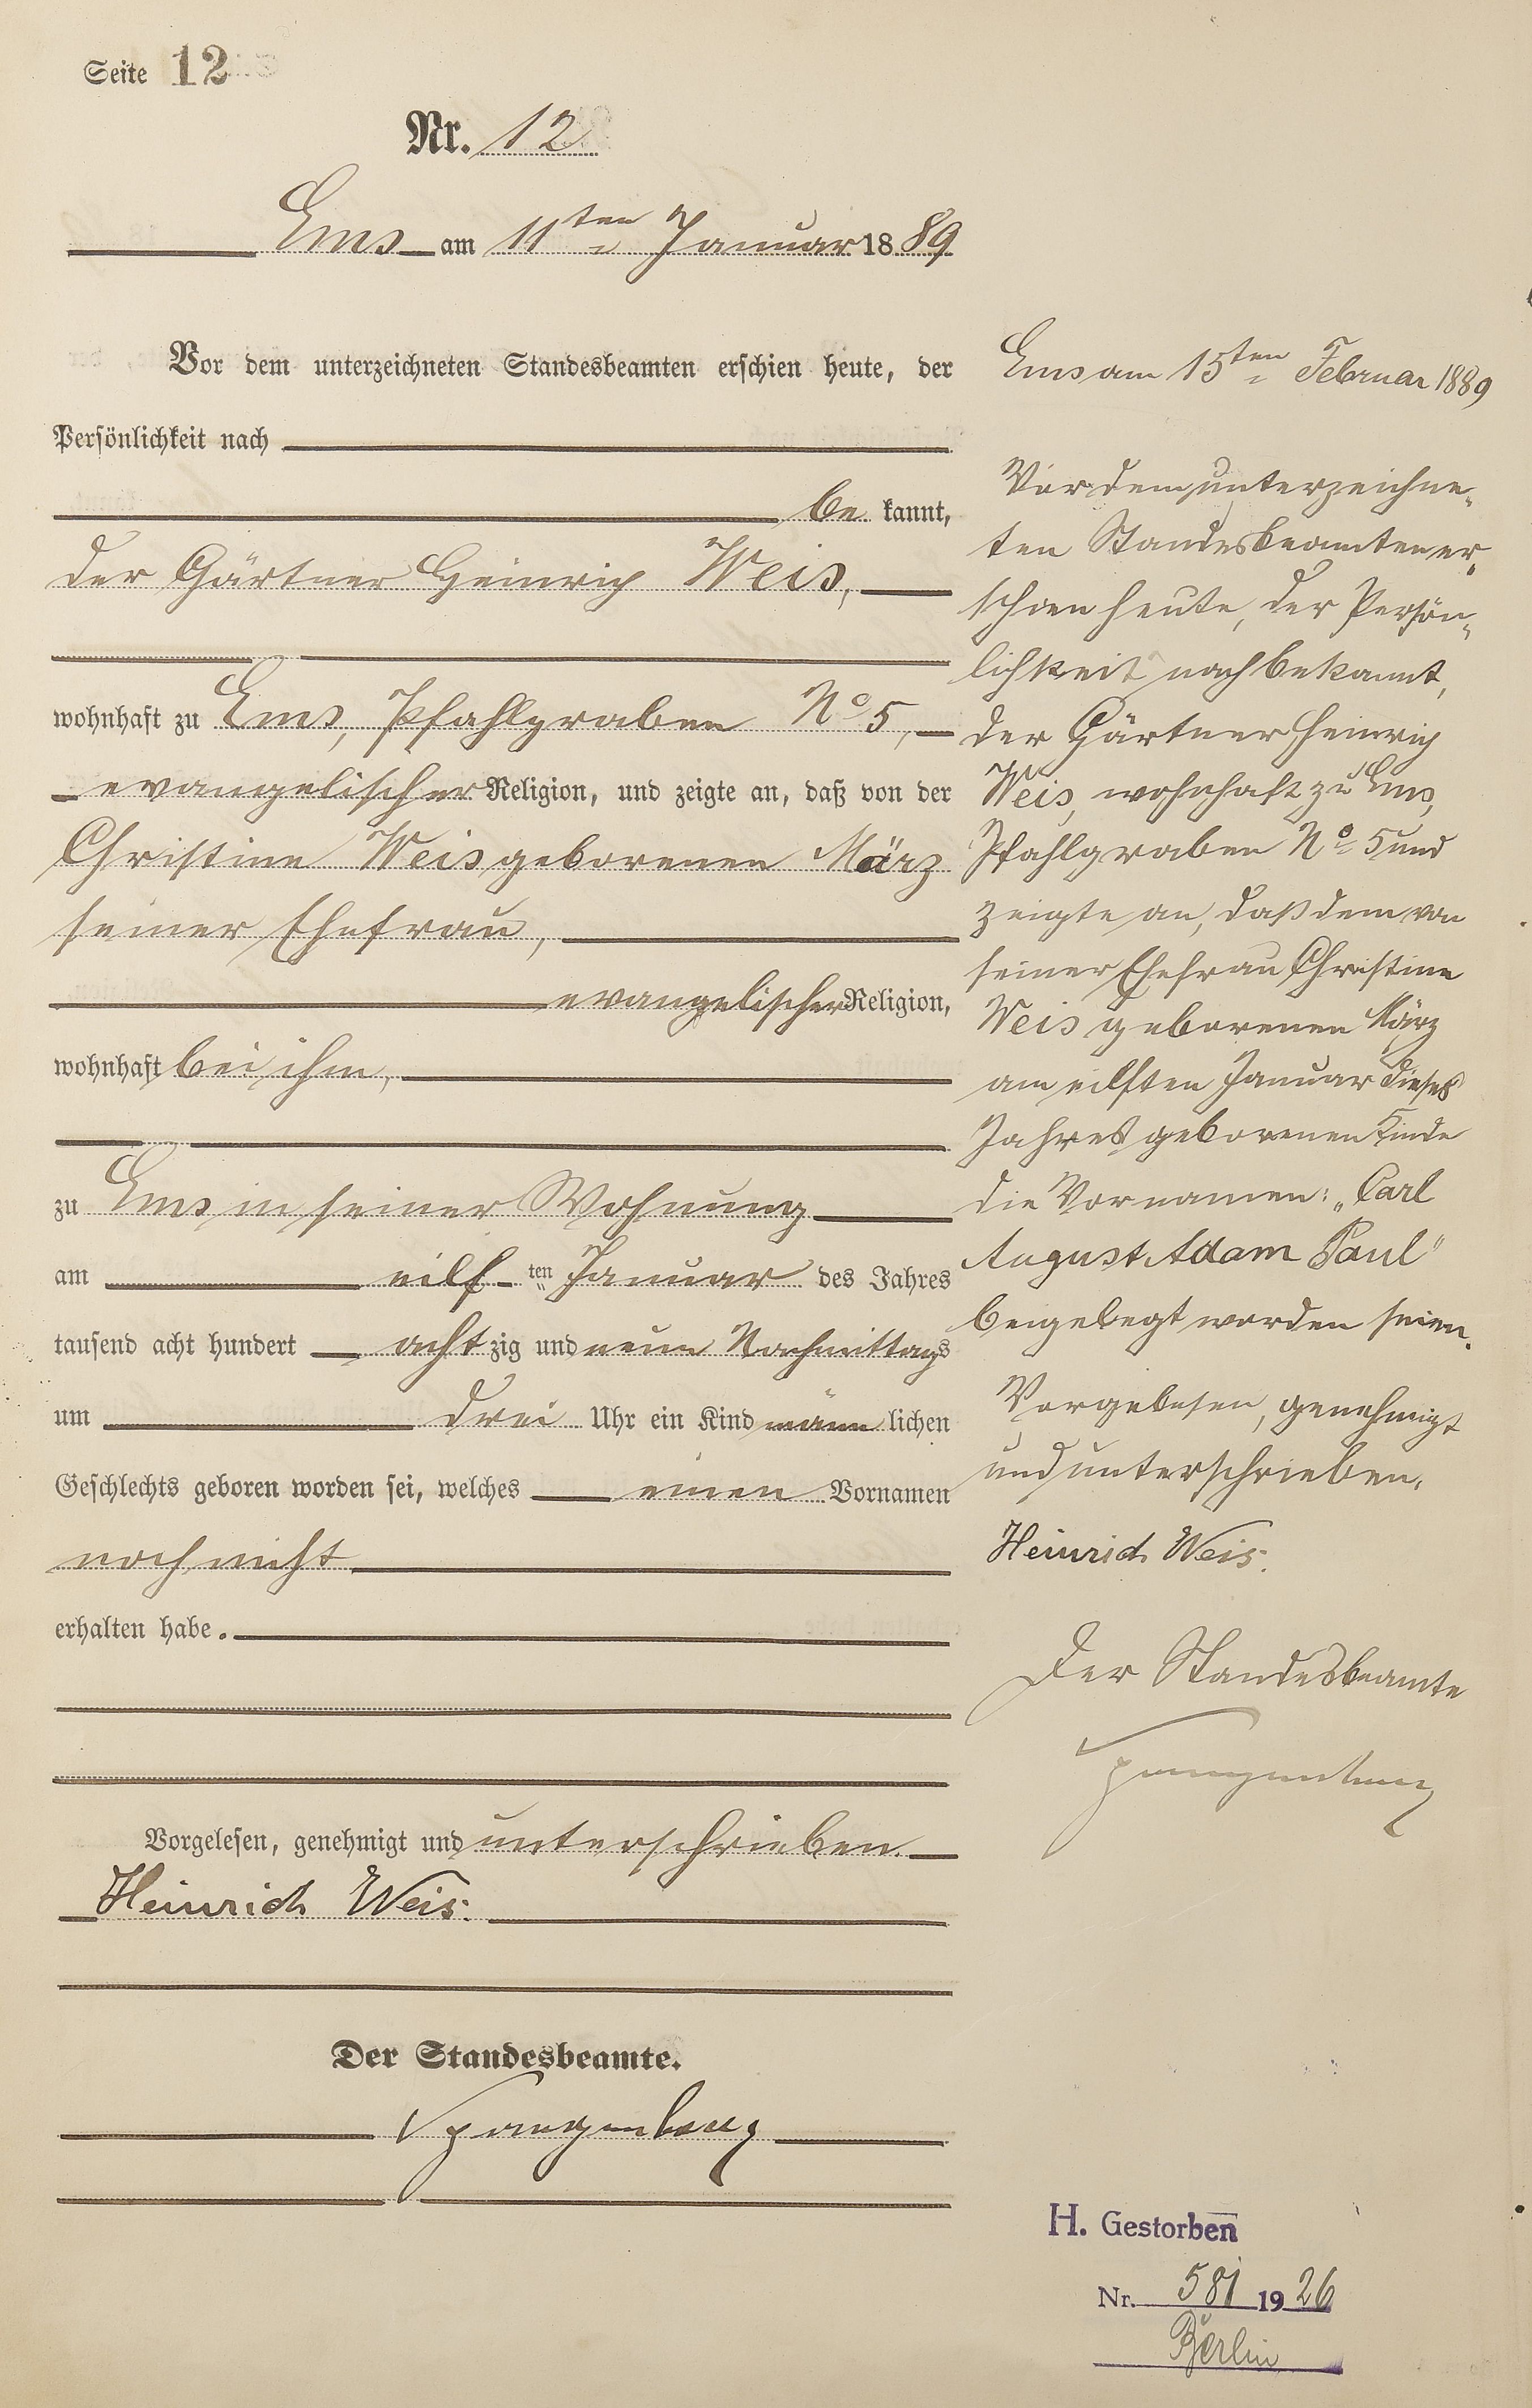 Seite 12
Nr. 12
Ems am 11ten Januar 1889
Vor dem unterzeichneten Standesbeamten erschien heute, der
Persönlichkeit nach
be kannt,
der Gärtner Heinrich Weis,
wohnhaft zu Ems, Pfahlgraben No 5,
evangelischer Religion, und zeigte an, daß von der
Christine Weis geborenen März
seiner Ehefrau,
evangelischer Religion,
wohnhaft bei ihm,
zu Ems in seiner Wohnung
am eilf ten Januar des Jahres
tausend acht hundert acht zig und neun Nachmittags
um drei Uhr ein Kind männ lichen
Geschlechts geboren worden sei, welches einen Vornamen
noch nicht
erhalten habe.
Vorgelesen, genehmigt und unterschrieben.
Heinrich Weis.
Der Standesbeamte.
Spangenberg
Ems am 15ten Februar 1889
Vor dem unterzeichne-
ten Standesbeamten er-
schien heute, der Persön-
lichkeit nach bekannt,
der Gärtner Heinrich
Weis, wohnhaft zu Ems,
Pfahlgraben No 5 und
zeigte an, daß dem von
seiner Ehefrau Christine
Weis geborenen März
am eilften Januar dieses
Jahres geborenen Kinde
die Vornamen: „Carl
August Adam Paul"
beigelegt worden seien.
Vorgelesen, genehmigt
und unterschrieben.
Heinrich Weis.
Der Standesbeamte
Spangenberg
H. Gestorben
Nr. 581 1926
Berlin